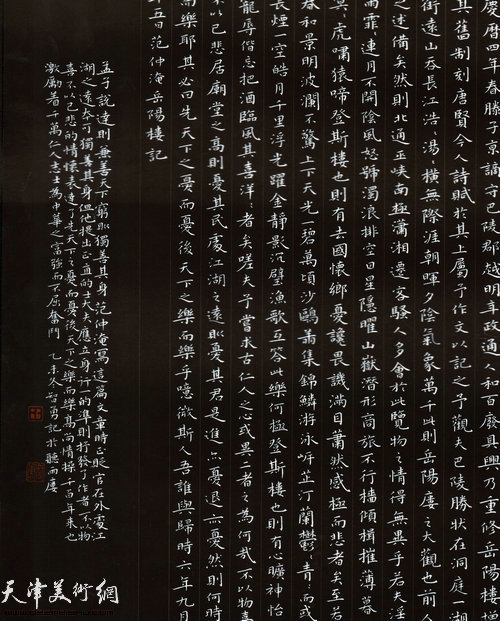 慶曆四年春滕子京謫守巴陵郡越明年政通人和百廢具興乃重修岳陽樓增
其舊制刻唐賢今人詩賦於其上屬予作文以記之予觀夫巴陵勝狀在洞庭一湖
銜遠山吞長江浩〻湯〻橫無際涯朝暉夕陰氣象萬千此則岳陽廔之大觀也前人
之述備矣然則北通巫峽南極瀟湘遷客騷人多會於此覽物之情得無異乎若夫淫
雨霏〻連月不開陰風怒號濁浪排空日星隱曜山嶽潛形商旅不行檣傾楫摧薄暮
冥〻虎嘯猿啼登斯樓也則有去國懷鄉憂讒畏譏滿目蕭然感極而悲者矣至若
春和景明波瀾不驚上下天光一碧萬頃沙鷗翔集錦鱗游泳岸芷汀蘭鬱〻青〻而或
長煙一空皓月千里浮光躍金靜影沉璧漁歌互答此樂何極登斯樓也則有心曠神怡
寵辱偕忘把酒臨風其喜洋〻者矣嗟夫予嘗求古仁人之心或異二者之為何哉不以物喜
不以己悲居廟堂之高則憂其民處江湖之遠則憂其君是進亦憂退亦憂然則何時
而樂耶其必曰先天下之憂而憂後天下之樂而樂乎噫微斯人吾誰與歸時六年九月
十五日范仲淹岳陽樓記
孟子說達則兼善天下窮則獨善其身范仲淹寫這篇文章時正貶官在外處江
湖之遠本可獨善其身但他提出正直的士大夫應立身行的準則抒發了作者不以物
喜不以己悲的情懷表達了先天下之憂而憂後天下之樂而樂高尚情操千百年來也
激勵著千萬仁人志士為中華之富強而不屈奮鬥 乙未冬智勇記於聽雨廔
天津美術網